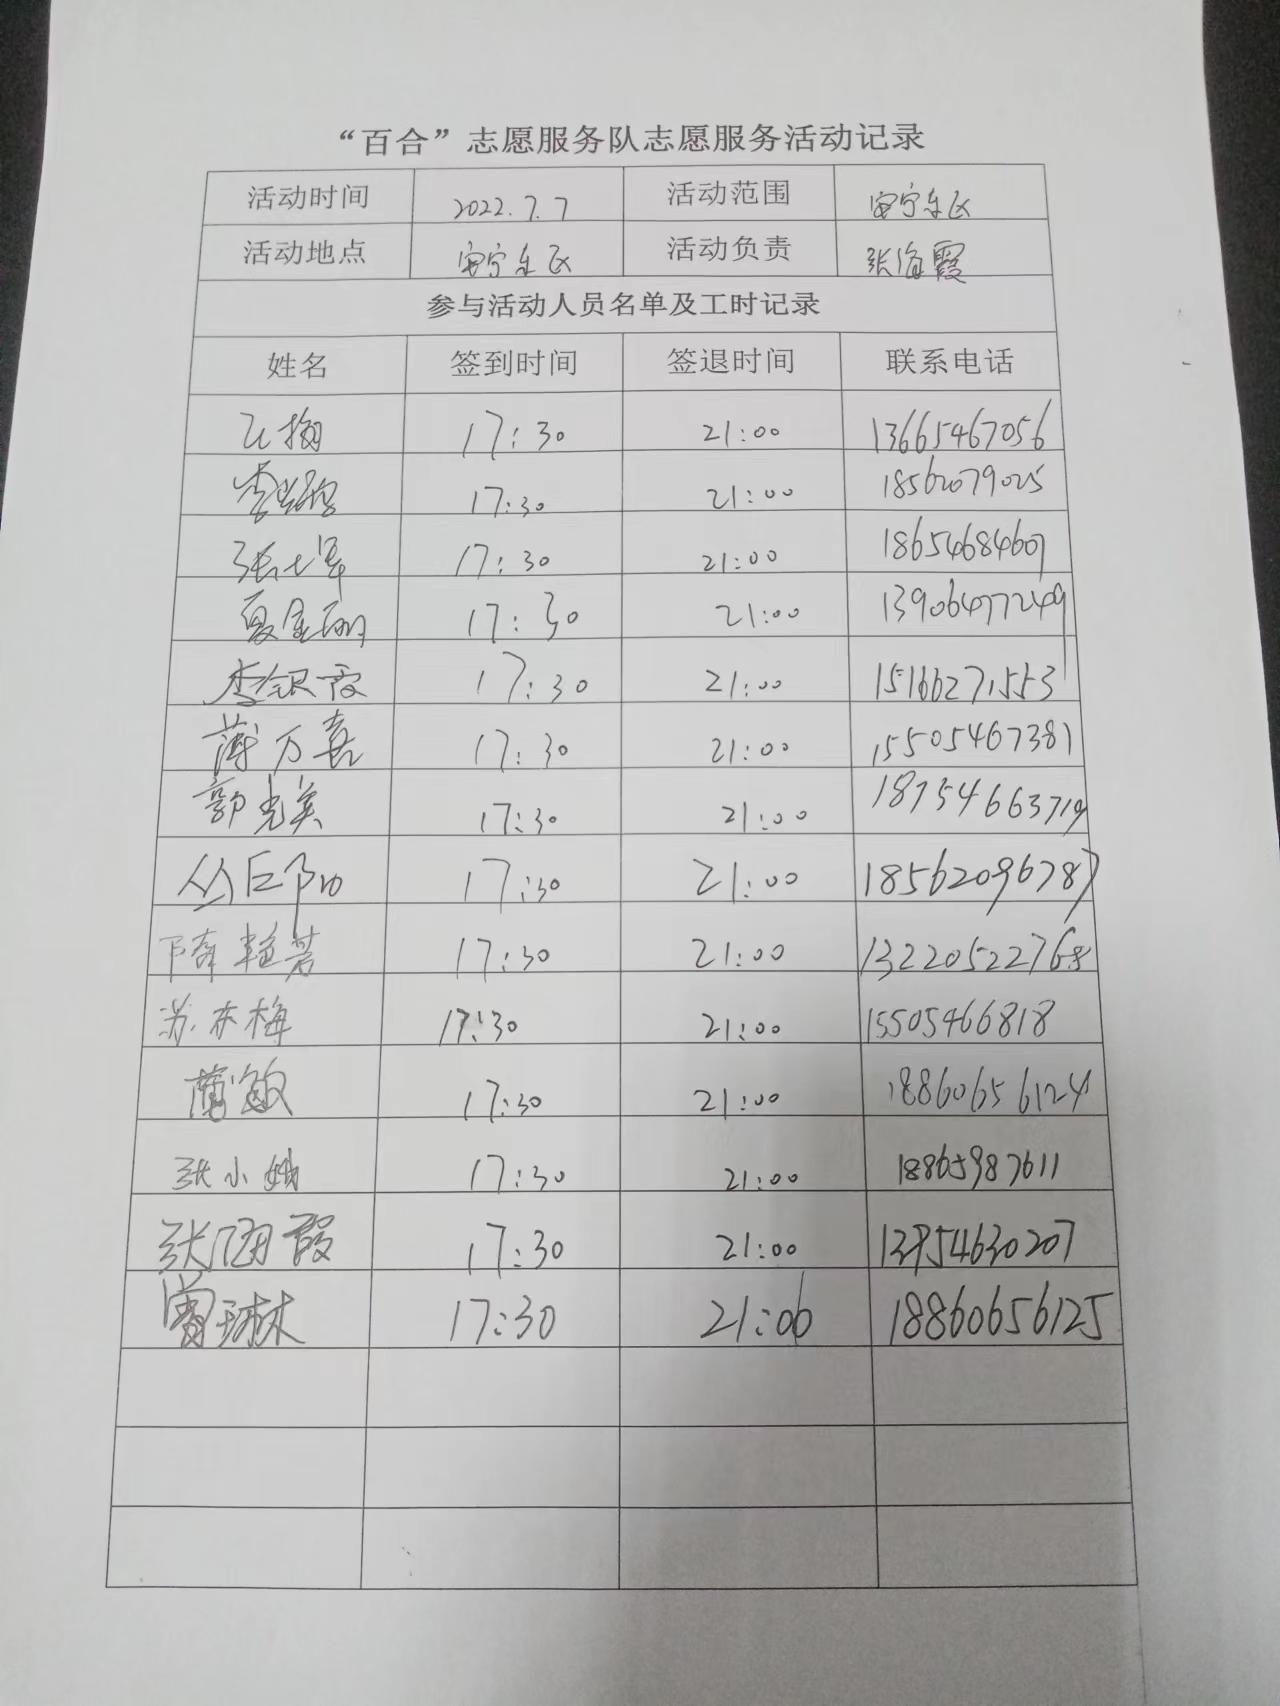 “百合”志愿服务队志愿服务活动记录
活动时间 2022.7.7 活动范围 安宁东区
活动地点 安宁东区 活动负责 张海霞
参与活动人员名单及工时记录
姓名 签到时间 签退时间 联系电话
17:30 21:00 13665467056
17:30 21:00 18562079025
17:30 21:00 18654684607
17:30 21:00 13906477249
李银霞 17:30 21:00 15166271553
薄万嘉 17:30 21:00 15505467381
郭光英 17:30 21:00 18754663719
丛巨阳 17:30 21:00 18562096787
17:30 21:00 13220522768
苏东梅 17:30 21:00 15505466818
薄敏 17:30 21:00 18860656124
张小娥 17:30 21:00 18865987611
张海霞 17:30 21:00 13954630207
17:30 21:00 18860656125